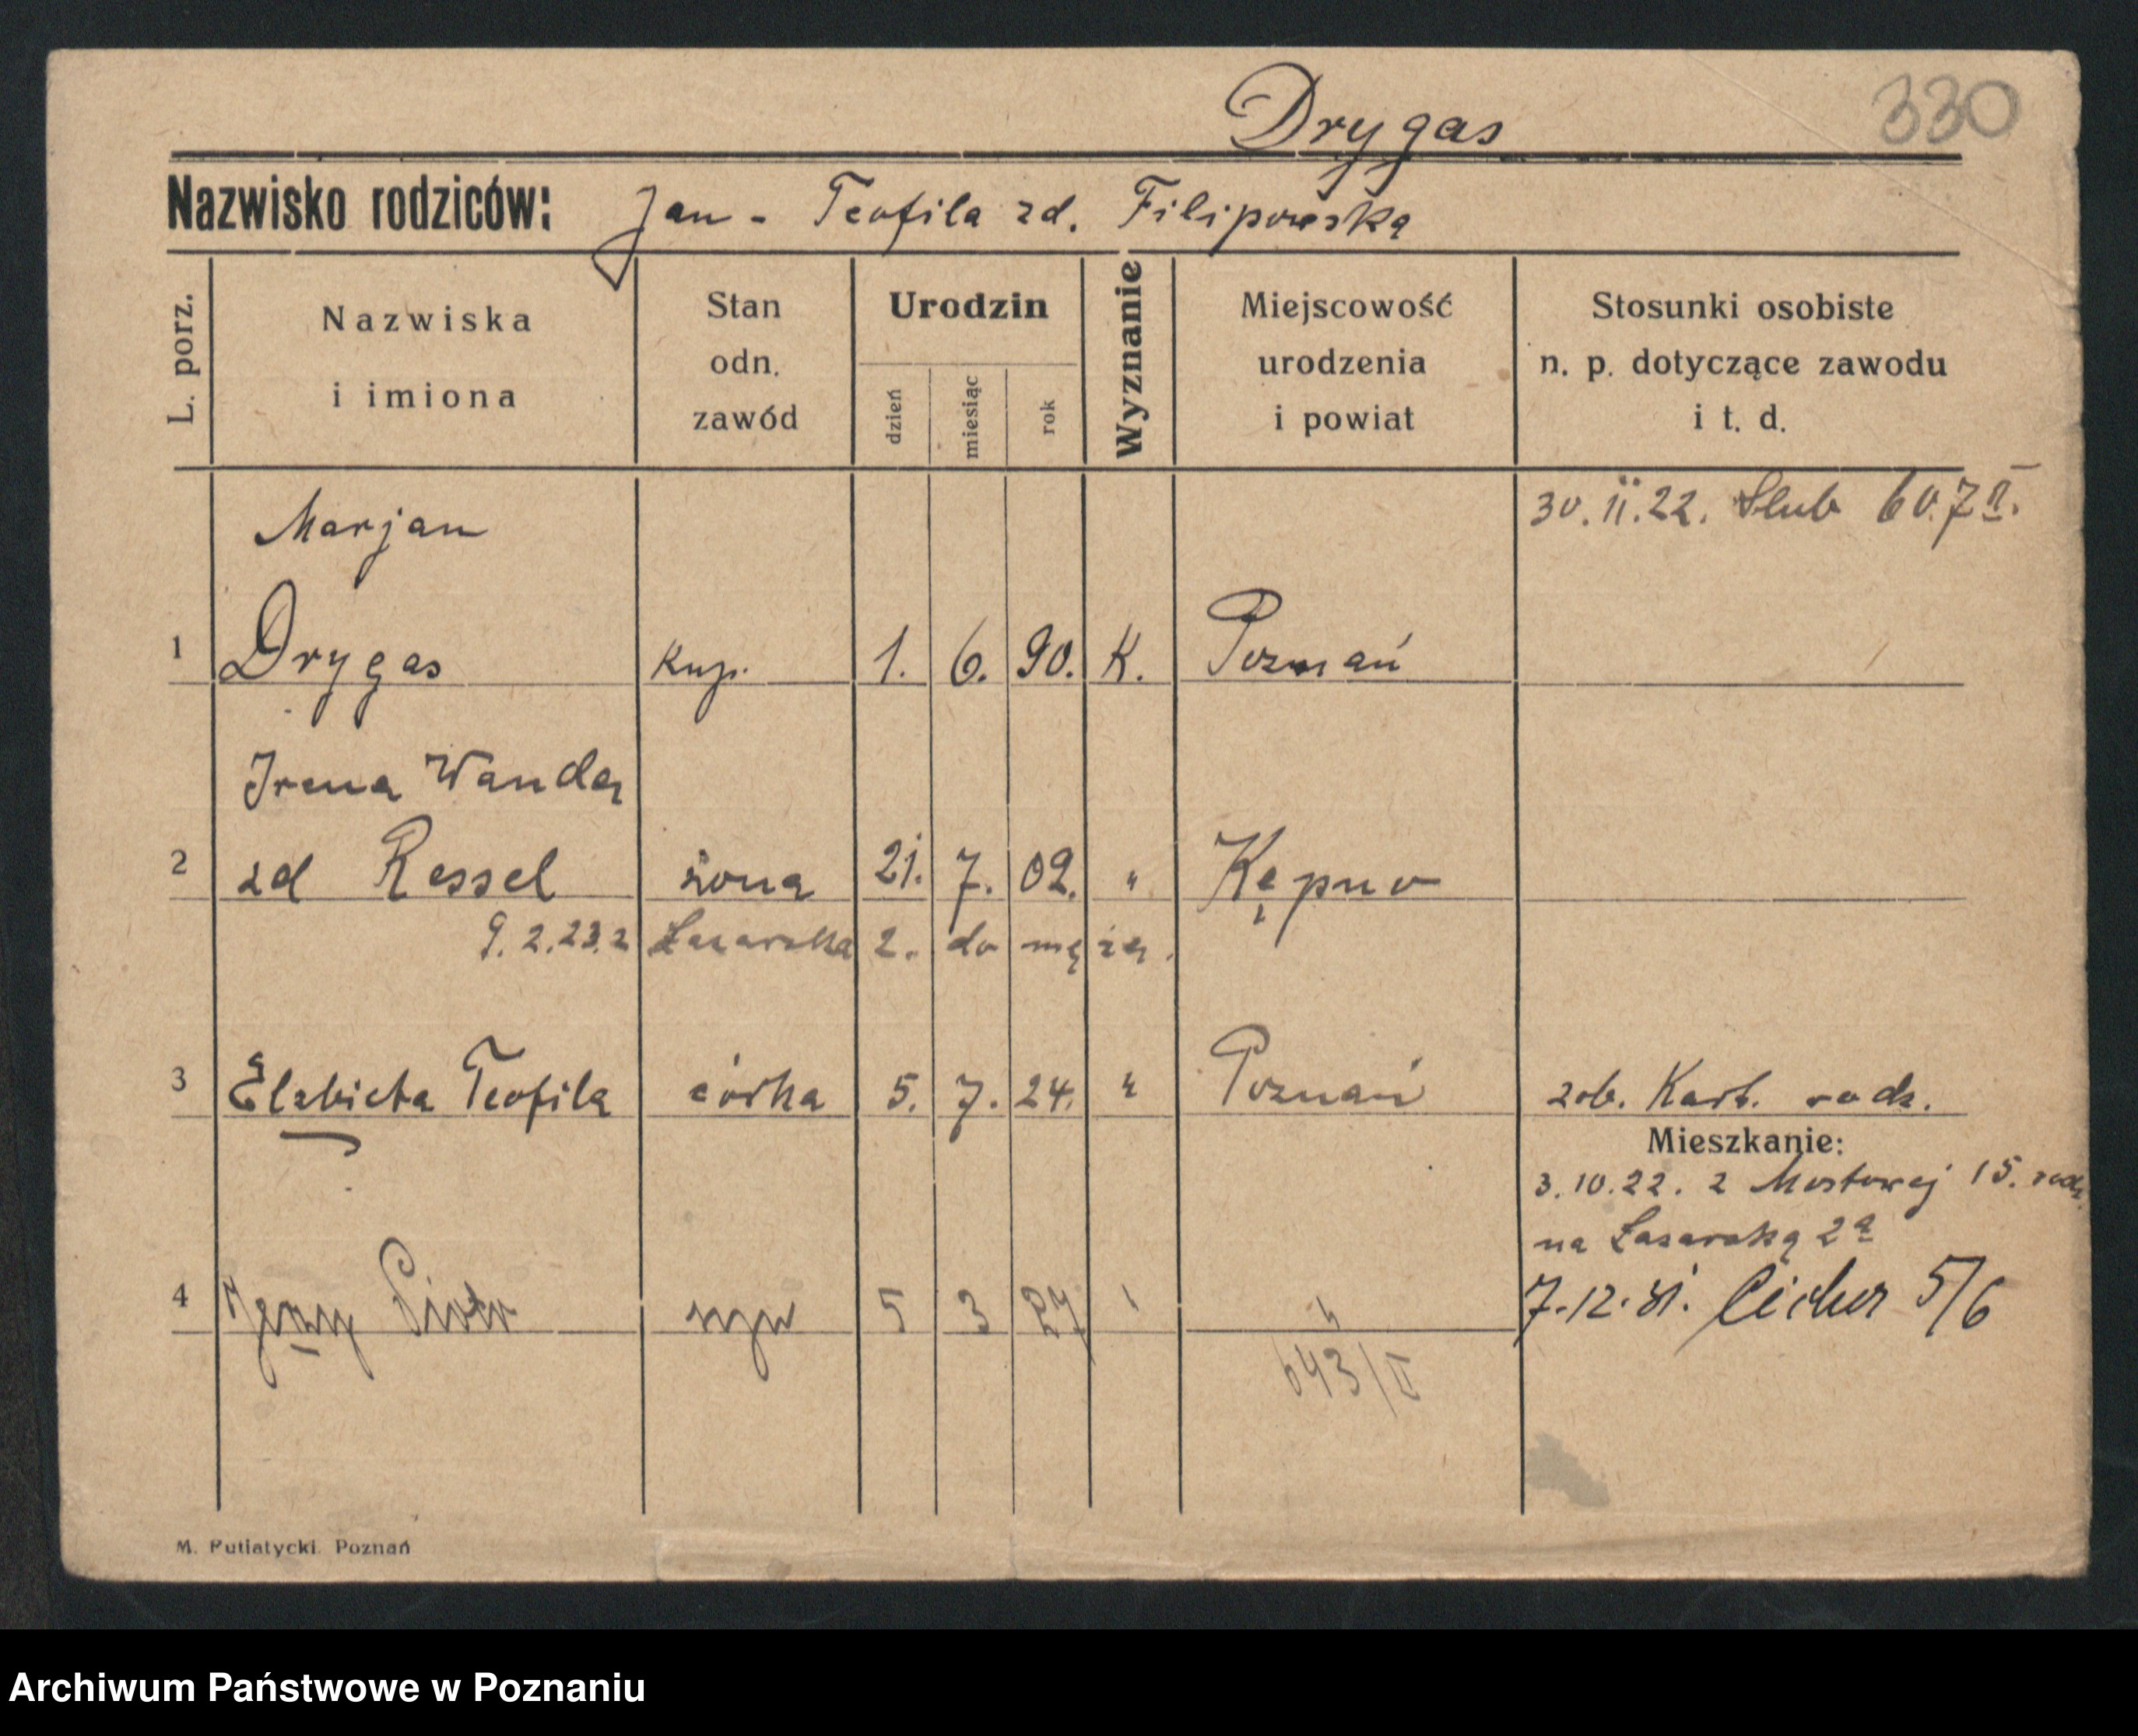 330
Drygas
Nazwisko rodziców: Jan - Teofila zd. Filipowską
L. porz.
Nazwiska
i imiona
Stan
odn.
zawód
Urodzin
dzień
miesiąc
rok
Wyznanie
Miejscowość
urodzenia
i powiat
Stosunki osobiste
n. p. dotyczące zawodu
i t. d.
Marjan
30. 11. 22. Ślub
1 Drygas kup. 1. 6. 90. K. Poznań
Irena Wanda
2 zd Ressel żona 21. 7. 02. " Kępno
9. 2. 23. z Łazarska 2. do męża.
3 Elżbieta Teofila córka 5. 7. 24. " Poznań zob. Kart. rodz.
Mieszkanie:
3. 10. 22. z Mostowej 15.
na Łazarską 2a
4 Jerzy Piotr syn 5 3 27 "
7. 12. 31. Cicha 5/6
643/II
M. Putiatycki. Poznań
Archiwum Państwowe w Poznaniu